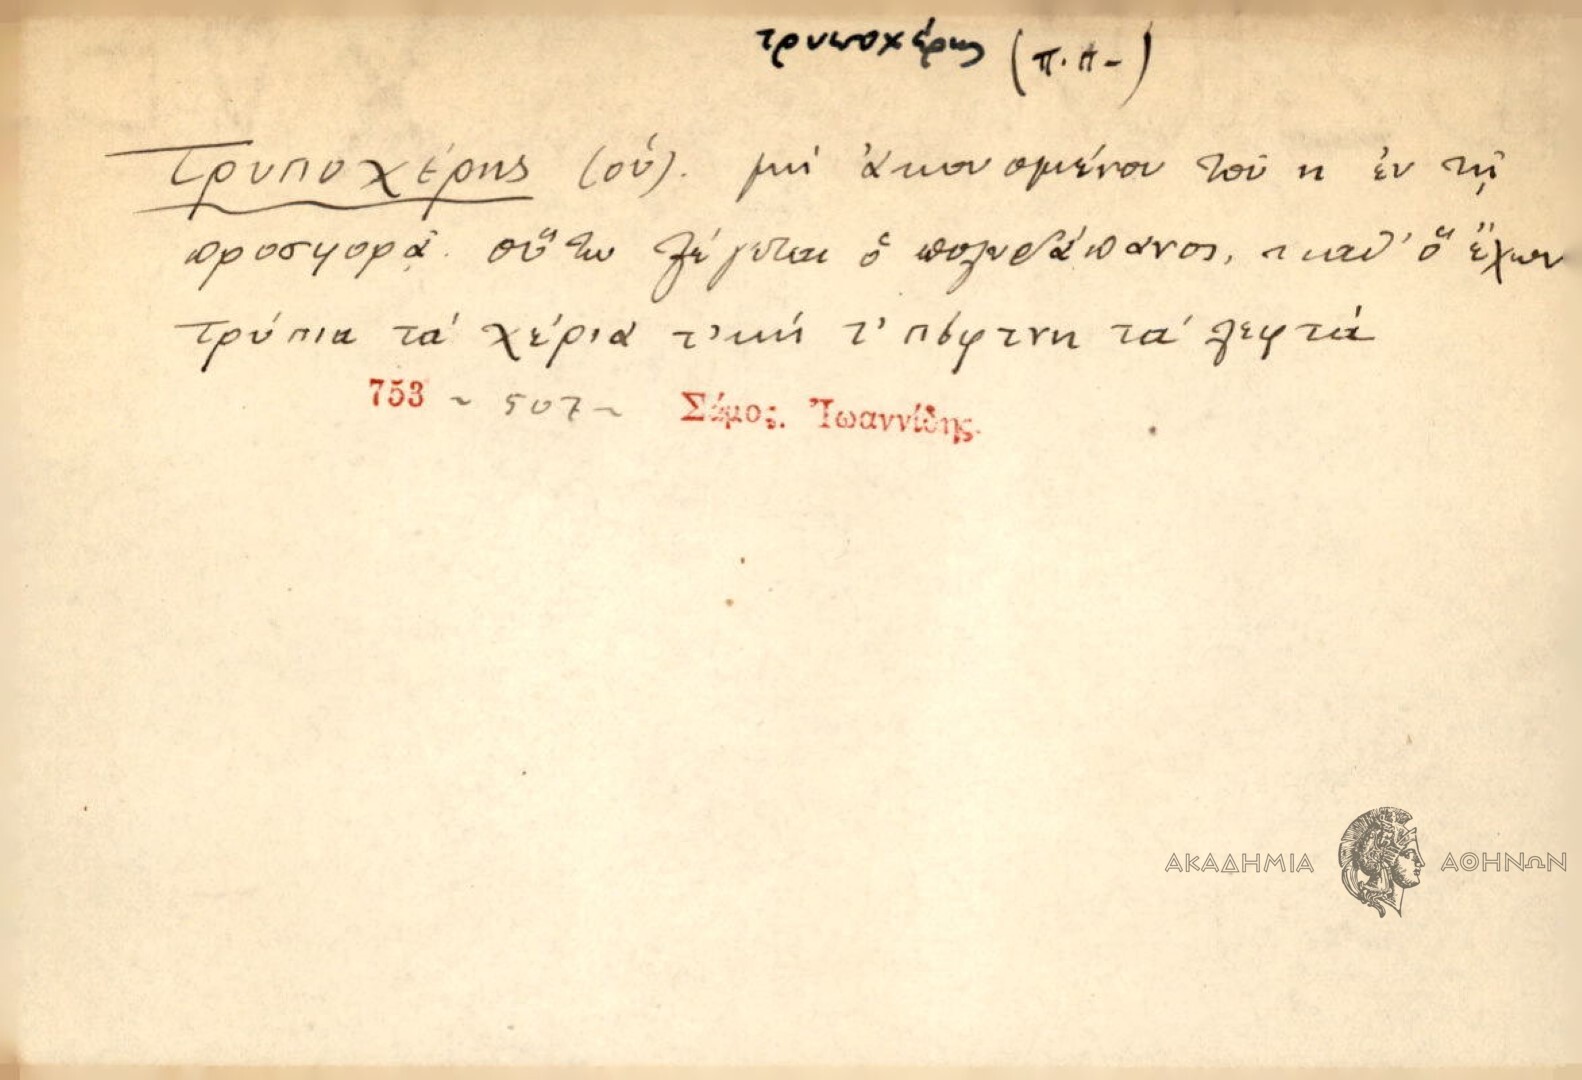 τρυποχέρης (π.π-)
Τρυποχέρης (οὑ). μὴ ἀκουομένου τοῦ η ἐν τῇ
προσφορᾷ. οὕτω λέγεται ὁ πολυδάπανος, καθ' ὅ ἔχων
τρύπια τὰ χέρια τ' πέφτνη τὰ λεφτά
753 ~ 507 ~ Σάμος. Ἰωαννίδης.
ΑΚΑΔΗΜΙΑ ΑΘΗΝΩΝ